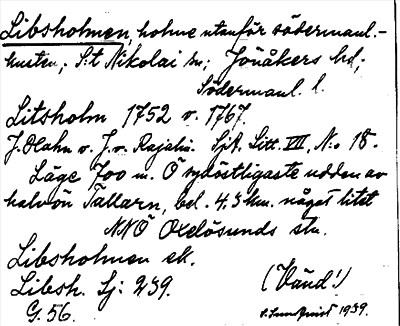 Libsholmen, holme utanför södermanl.-
kusten; S:t Nikolai sn; Jönåkers hd;
Södermanl. l.
Litsholm 1752 o. 1767.
J. Olahn o. J. v. Rajalin. SjA. Litt. VII, N:o 18.
Läge 700 m. O sydöstligaste udden av
halvön Tallarn, bel. 4.3 km. något litet
NNÖ Oxelösunds stn.
Libsholmen ek.
Libsh. Sj: 239. (Vänd!)
G. 56. 1939.